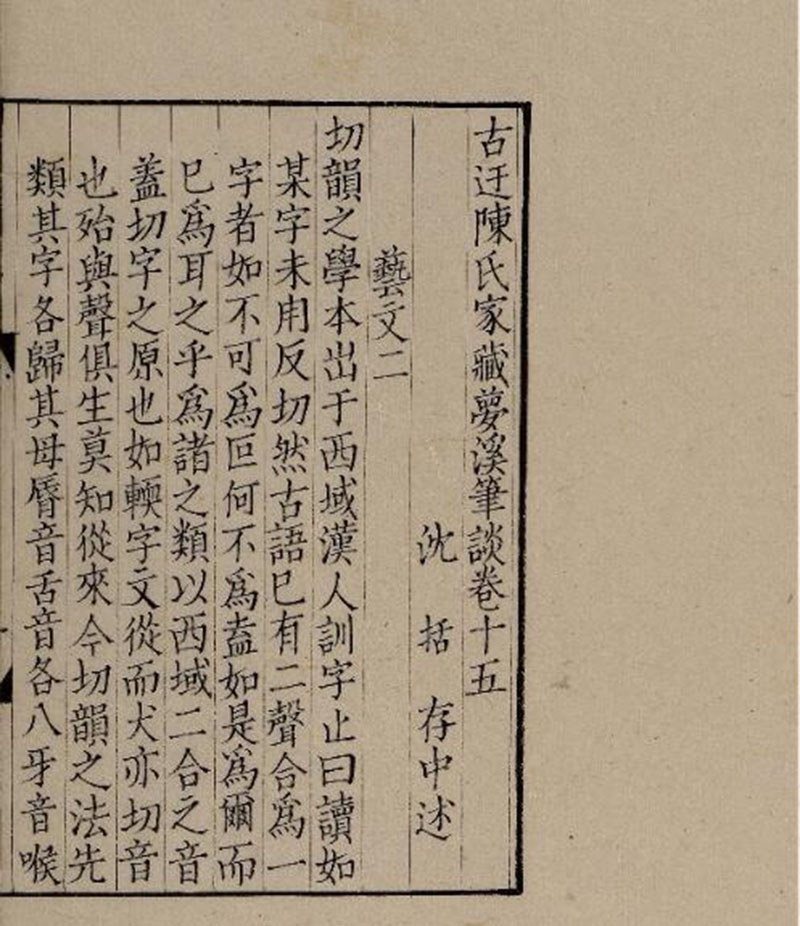 古迂陳氏家藏夢溪筆談卷十五
沈括存中述
藝文二
切韻之學本出于西域漢人訓字止曰讀如
某字未用反切然古語已有二聲合爲一
字者如不可爲叵何不爲盍如是爲爾而
已爲耳之乎爲諸之類以西域二合之音
蓋切字之原也如輭字文從而犬亦切音
也殆與聲俱生莫知從來今切韻之法先
類其字各歸其母脣音舌音各八牙音喉